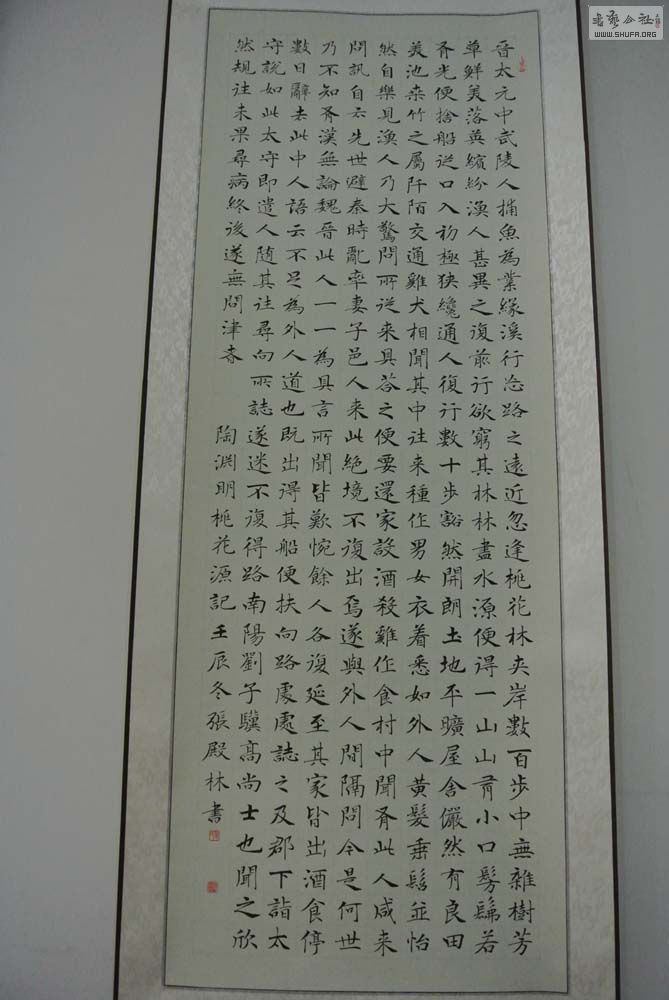 晉太元中武陵人捕魚為業緣溪行忘路之遠近忽逢桃花林夾岸數百步中無雜樹芳
草鮮美落英繽紛漁人甚異之復前行欲窮其林林盡水源便得一山山有小口髣髴若
有光便捨船從口入初極狹纔通人復行數十步豁然開朗土地平曠屋舍儼然有良田
美池桑竹之屬阡陌交通雞犬相聞其中往來種作男女衣着悉如外人黃髮垂髫並怡
然自樂見漁人乃大驚問所從來具答之便要還家設酒殺雞作食村中聞有此人咸來
問訊自云先世避秦時亂率妻子邑人來此絕境不復出焉遂與外人間隔問今是何世
乃不知有漢無論魏晉此人一一為具言所聞皆歎惋餘人各復延至其家皆出酒食停
數日辭去此中人語云不足為外人道也既出得其船便扶向路處處誌之及郡下詣太
守說如此太守即遣人隨其往尋向所誌遂迷不復得路南陽劉子驥高尚士也聞之欣
然規往未果尋病終後遂無問津者
陶淵明桃花源記壬辰冬張殿林書
WWW.SHUFA.ORG